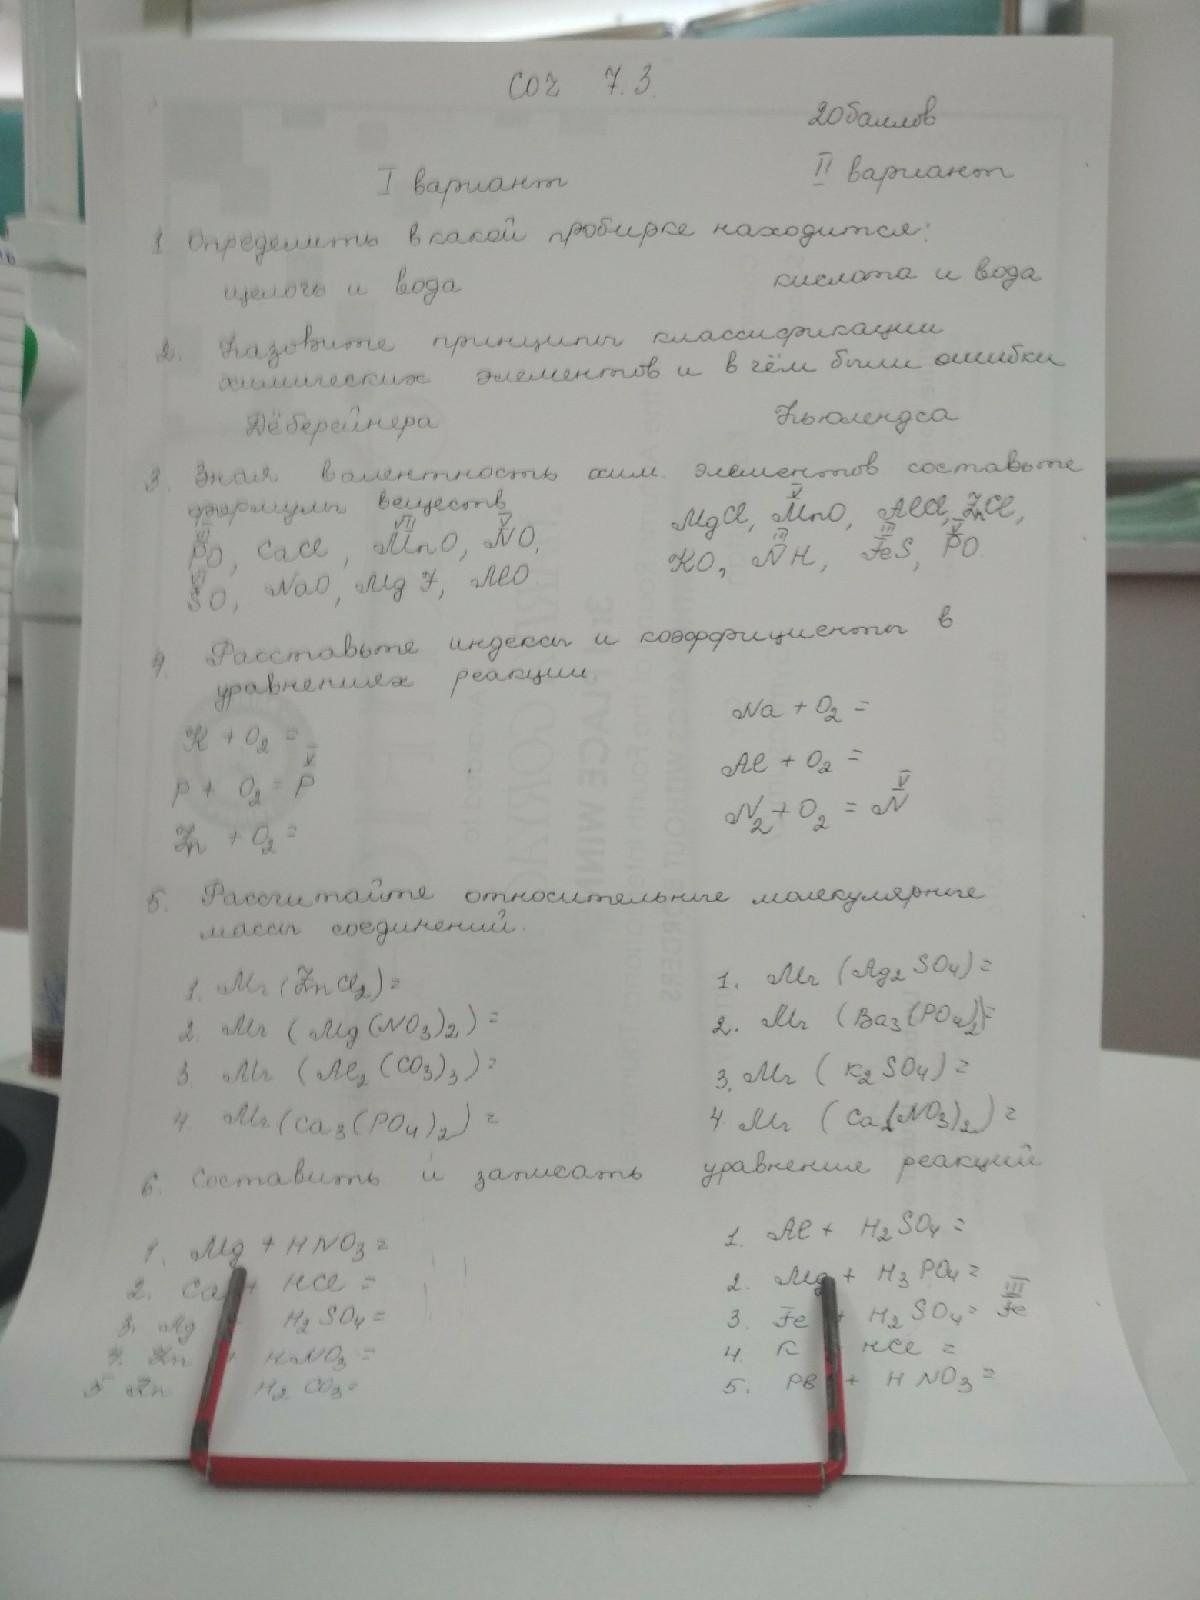 СОЧ 7.3.
20баллов
I вариант II вариант
1 Определить в какой пробирке находится:
щелочь и вода кислота и вода
2. Назовите принципы классификации
химических элементов и в чём были ошибки
Дёберейнера Ньюлендса
3. Зная валентность хим. элементов составьте
формулы веществ
III PO, CaCl, VII MnO, V NO,
SO, NaO, Mg F, AlO
MgCl, V MnO, AlCl, ZnCl,
KO, III NH, III FeS, V PO
4. Расставьте индексы и коэффициенты в
уравнениях реакции.
K + O2 =
P + O2 = V P
Zn + O2 =
Na + O2 =
Al + O2 =
N2 + O2 = V N
5. Рассчитайте относительные молекулярные
массы соединений.
1. Mr (ZnCl2) =
2. Mr (Mg(NO3)2) =
3. Mr (Al2(CO3)3) =
4. Mr (Ca3(PO4)2) =
1. Mr (Ag2 SO4) =
2. Mr (Ba3(PO4)2) =
3. Mr (K2 SO4) =
4 Mr (Ca(NO3)2) =
6. Составить и записать уравнение реакций
1. Mg + HNO3 =
2. Ca + HCl =
3. Mg H2SO4 =
4. Zn + HNO3 =
5 Zn H2 CO3 =
1. Al + H2SO4 =
2. Mg + H3 PO4 =
3. Fe + H2 SO4 = III Fe
4. K HCl =
5. PB + H NO3 =